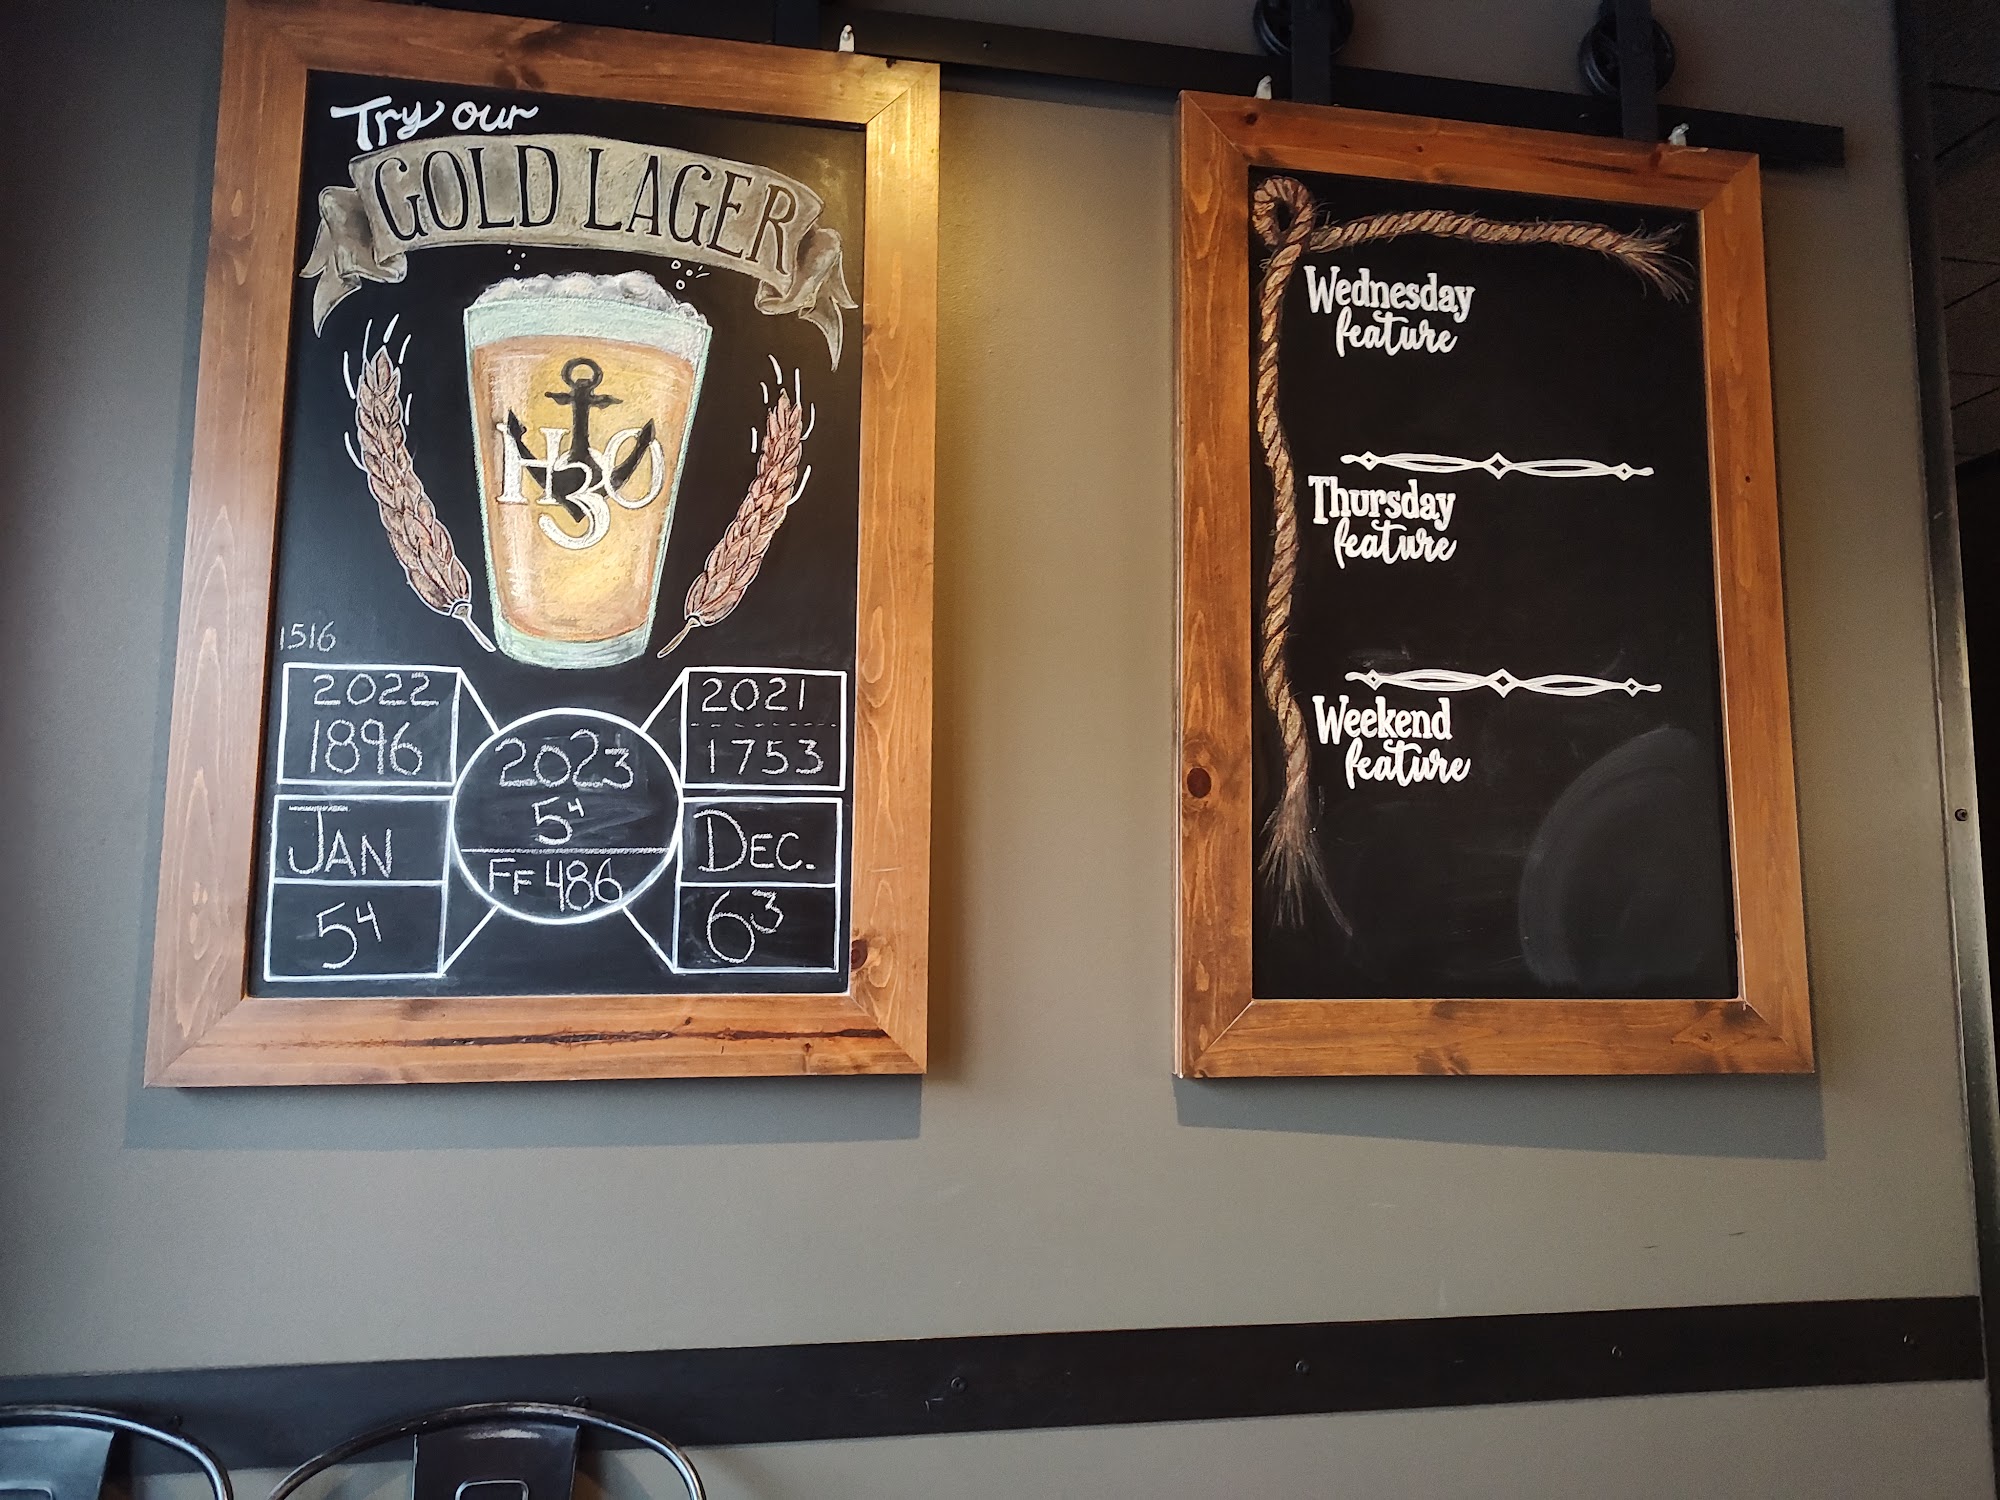 Try our
GOLD LAGER
H3O
1516
2022
1896
JAN
5⁴
2023
5⁴
FF 486
2021
1753
DEC.
6³
Wednesday
feature
Thursday
feature
Weekend
feature